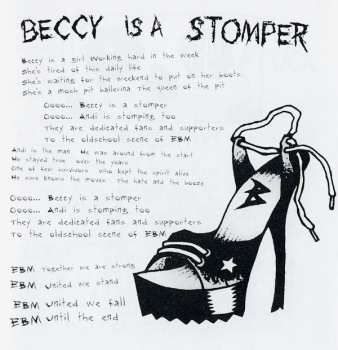 BECCY IS A STOMPER
Beccy is a girl working hard in the week
She's tired of this daily life
She's waiting for the weekend to put on her boots
She's a mosh pit ballerina The queen of the pit
Oooo... Beccy is a stomper
Oooo... Andi is stomping too
They are dedicated fans and supporters
To the oldschool scene of EBM
Andi is the man He was around from the start
He stayed true over the years
One of few survivors who kept the spirit alive
He sure knows the moves The hate and the booze
Oooo... Beccy is a stomper
Oooo... Andi is stomping too
They are dedicated fans and supporters
To the oldschool scene of EBM
EBM Together we are strong
EBM United we stand
EBM United we fall
EBM Until the end
B